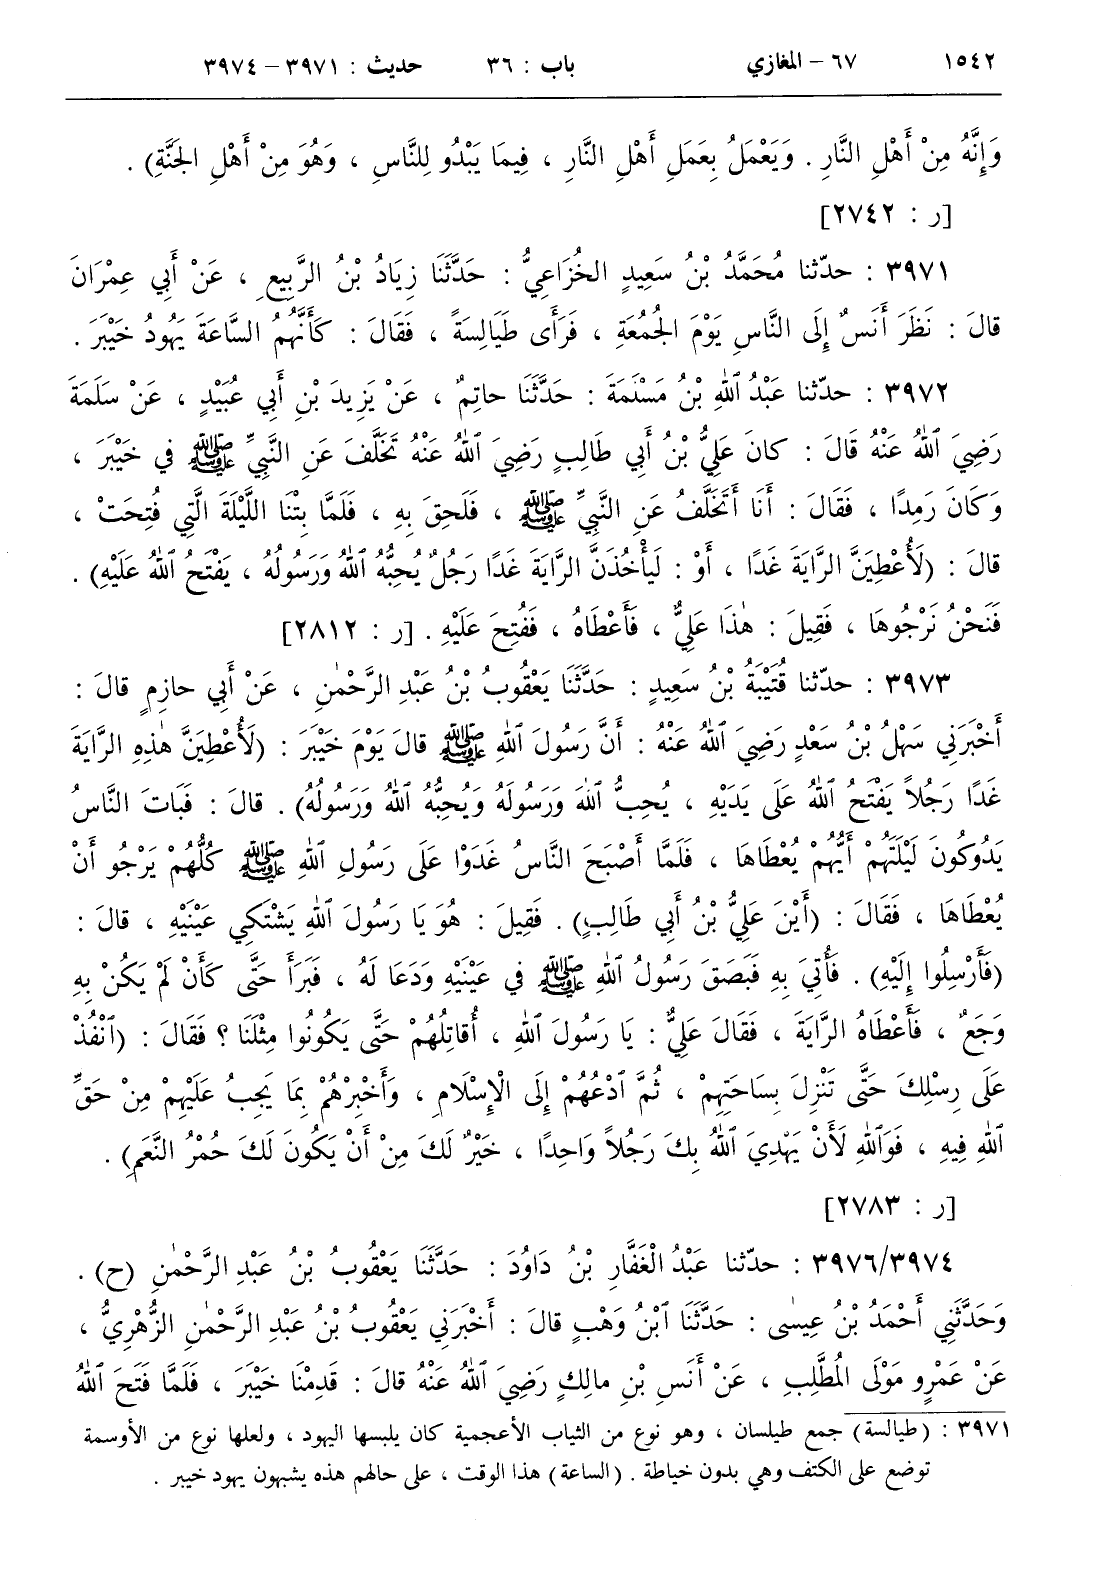 ١٥٤٢ ٦٧ - المغازي باب : ٣٦ حديث : ٣٩٧١ - ٣٩٧٤
وَإِنَّهُ مِنْ أَهْلِ النَّارِ . وَيَعْمَلُ بِعَمَلِ أَهْلِ النَّارِ ، فِيمَا يَبْدُو لِلنَّاسِ ، وَهُوَ مِنْ أَهْلِ الجَنَّةِ) .
[ر : ٢٧٤٢]
٣٩٧١ : حدّثنا مُحَمَّدُ بْنُ سَعِيدٍ الخُزَاعِيُّ : حَدَّثَنَا زِيَادُ بْنُ الرَّبِيعِ ، عَنْ أَبِي عِمْرَانَ
قالَ : نَظَرَ أَنَسٌ إِلَى النَّاسِ يَوْمَ الجُمُعَةِ ، فَرَأَى طَيَالِسَةً ، فَقَالَ : كَأَنَّهُمُ السَّاعَةَ يَهُودُ خَيْبَرَ .
٣٩٧٢ : حدّثنا عَبْدُ ٱللهِ بْنُ مَسْلَمَةَ : حَدَّثَنَا حاتِمٌ ، عَنْ يَزِيدَ بْنِ أَبِي عُبَيْدٍ ، عَنْ سَلَمَةَ
رَضِيَ ٱللهُ عَنْهُ قَالَ : كانَ عَلِيُّ بْنُ أَبِي طَالِبٍ رَضِيَ ٱللهُ عَنْهُ تَخَلَّفَ عَنِ النَّبِيِّ ﷺ في خَيْبَرَ ،
وَكَانَ رَمِدًا ، فَقَالَ : أَنَا أَتَخَلَّفُ عَنِ النَّبِيِّ ﷺ ، فَلَحِقَ بِهِ ، فَلَمَّا بِتْنَا اللَّيْلَةَ الَّتِي فُتِحَتْ ،
قالَ : (لَأُعْطِيَنَّ الرَّايَةَ غَدًا ، أَوْ : لَيَأْخُذَنَّ الرَّايَةَ غَدًا رَجُلٌ يُحِبُّهُ ٱللهُ وَرَسُولُهُ ، يَفْتَحُ ٱللهُ عَلَيْهِ) .
فَنَحْنُ نَرْجُوهَا ، فَقِيلَ : هٰذَا عَلِيٌّ ، فَأَعْطَاهُ ، فَفُتِحَ عَلَيْهِ . [ر : ٢٨١٢]
٣٩٧٣ : حدّثنا قُتَيْبَةُ بْنُ سَعِيدٍ : حَدَّثَنَا يَعْقُوبُ بْنُ عَبْدِ الرَّحْمٰنِ ، عَنْ أَبِي حازِمٍ قالَ :
أَخْبَرَنِي سَهْلُ بْنُ سَعْدٍ رَضِيَ ٱللهُ عَنْهُ : أَنَّ رَسُولَ ٱللهِ ﷺ قالَ يَوْمَ خَيْبَرَ : (لَأُعْطِيَنَّ هٰذِهِ الرَّايَةَ
غَدًا رَجُلاً يَفْتَحُ ٱللهُ عَلَى يَدَيْهِ ، يُحِبُّ ٱللهَ وَرَسُولَهُ وَيُحِبُّهُ ٱللهُ وَرَسُولُهُ) . قالَ : فَبَاتَ النَّاسُ
يَدُوكُونَ لَيْلَتَهُمْ أَيُّهُمْ يُعْطَاهَا ، فَلَمَّا أَصْبَحَ النَّاسُ غَدَوْا عَلَى رَسُولِ ٱللهِ ﷺ كُلُّهُمْ يَرْجُو أَنْ
يُعْطَاهَا ، فَقَالَ : (أَيْنَ عَلِيُّ بْنُ أَبِي طَالِبٍ) . فَقِيلَ : هُوَ يَا رَسُولَ ٱللهِ يَشْتَكِي عَيْنَيْهِ ، قالَ :
(فَأَرْسِلُوا إِلَيْهِ) . فَأُتِيَ بِهِ فَبَصَقَ رَسُولُ ٱللهِ ﷺ في عَيْنَيْهِ وَدَعَا لَهُ ، فَبَرَأَ حَتَّى كَأَنْ لَمْ يَكُنْ بِهِ
وَجَعٌ ، فَأَعْطَاهُ الرَّايَةَ ، فَقَالَ عَلِيٌّ : يَا رَسُولَ ٱللهِ ، أُقَاتِلُهُمْ حَتَّى يَكُونُوا مِثْلَنَا ؟ فَقَالَ : (ٱنْفُذْ
عَلَى رِسْلِكَ حَتَّى تَنْزِلَ بِسَاحَتِهِمْ ، ثُمَّ ٱدْعُهُمْ إِلَى الْإِسْلَامِ ، وَأَخْبِرْهُمْ بِمَا يَجِبُ عَلَيْهِمْ مِنْ حَقِّ
ٱللهِ فِيهِ ، فَوَٱللهِ لَأَنْ يَهْدِيَ ٱللهُ بِكَ رَجُلاً وَاحِدًا ، خَيْرٌ لَكَ مِنْ أَنْ يَكُونَ لَكَ حُمْرُ النَّعَمِ) .
[ر : ٢٧٨٣]
٣٩٧٦/٣٩٧٤ : حدّثنا عَبْدُ الْغَفَّارِ بْنُ دَاوُدَ : حَدَّثَنَا يَعْقُوبُ بْنُ عَبْدِ الرَّحْمٰنِ (ح) .
وَحَدَّثَنِي أَحْمَدُ بْنُ عِيسٰى : حَدَّثَنَا ٱبْنُ وَهْبٍ قالَ : أَخْبَرَنِي يَعْقُوبُ بْنُ عَبْدِ الرَّحْمٰنِ الزُّهْرِيُّ ،
عَنْ عَمْرٍو مَوْلَى الْمُطَّلِبِ ، عَنْ أَنَسِ بْنِ مالِكٍ رَضِيَ ٱللهُ عَنْهُ قالَ : قَدِمْنَا خَيْبَرَ ، فَلَمَّا فَتَحَ ٱللهُ
٣٩٧١ : (طيالسة) جمع طيلسان ، وهو نوع من الثياب الأعجمية كان يلبسها اليهود ، ولعلها نوع من الأوسمة
توضع على الكتف وهي بدون خياطة . (الساعة) هذا الوقت ، على حالهم هذه يشبهون يهود خيبر .